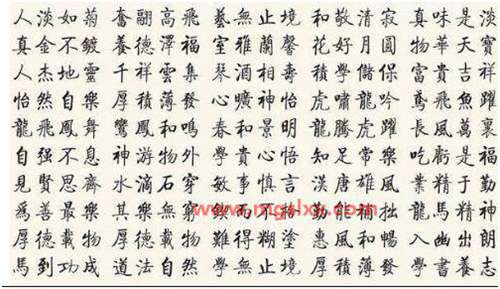 人淡如菊 奮翮高飛 藝無止境 和敬清寂 真味是淡
真金不鍍 養德澤福 室雅蘭馨 花好月圓 物華天寶
人杰地靈 千祥雲集 琴酒相壽 學儲保 富貴吉祥
怡然自樂 厚積薄發 心曠神怡 虎嘯龍吟 鳶飛魚躍
龍飛鳳舞 鸞鳳和鳴 春和景明 龍騰虎躍 長風萬裏
自强不息 神游物外 學貴心悟 知足常樂 吃虧是福
見賢思齊 水滴石穿 敏事慎言 漢唐雄風 業精于勤
為善最樂 其樂無窮 而不 勤能補拙 龍馬精神
厚德載物 厚德載物 難得糊塗 惠風和暢 入幽出朗
馬到功成 道法自然 學無止境 厚積薄發 學書養志